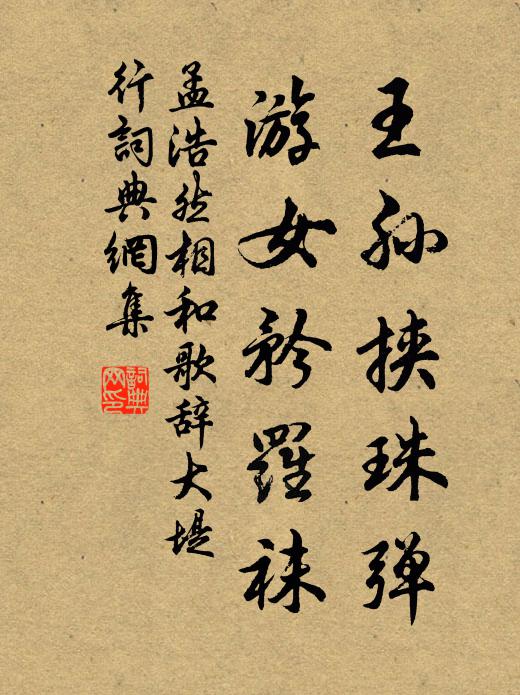 王孙挟珠弹
游女矜羅袜
孟浩然相和歌辞大堤
行詞典網集
詞典
网印